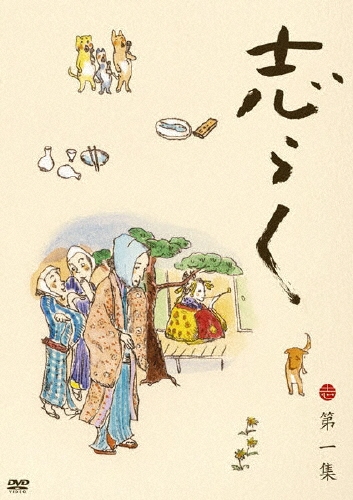 志らく
第一集
DVD
VIDEO